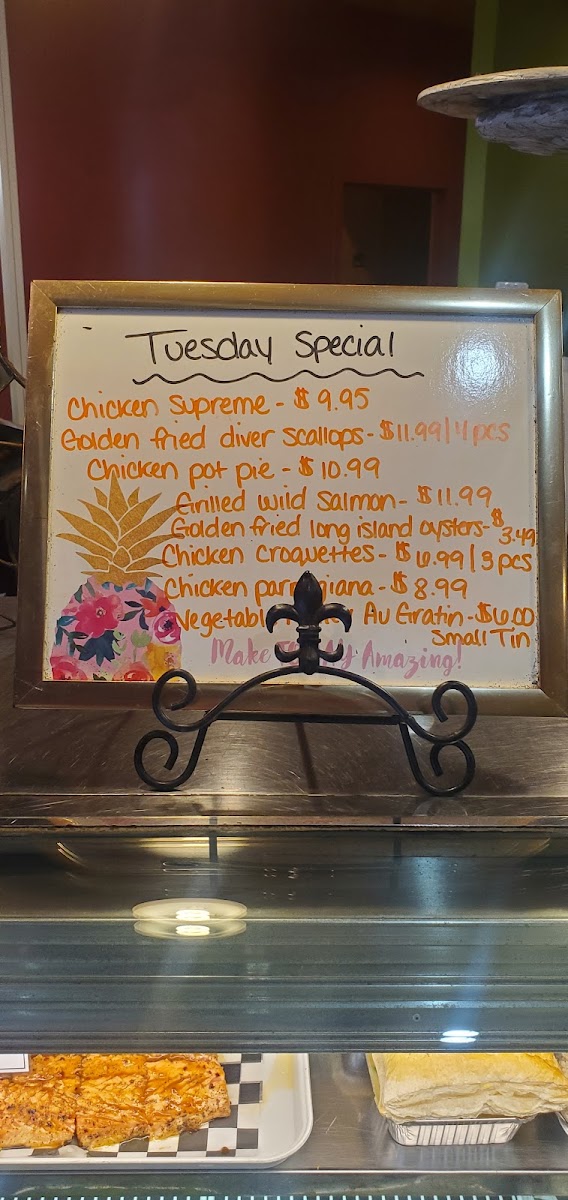 Tuesday Special
Chicken Supreme - $9.95
Golden fried diver scallops - $11.99 | 4 pcs
Chicken pot pie - $10.99
Grilled wild Salmon - $11.99
Golden fried long island oysters - $3.49
Chicken Croquettes - $6.99 | 3 pcs
Chicken parmigiana - $8.99
Au Gratin - $6.00
Small Tin
Make Amazing!